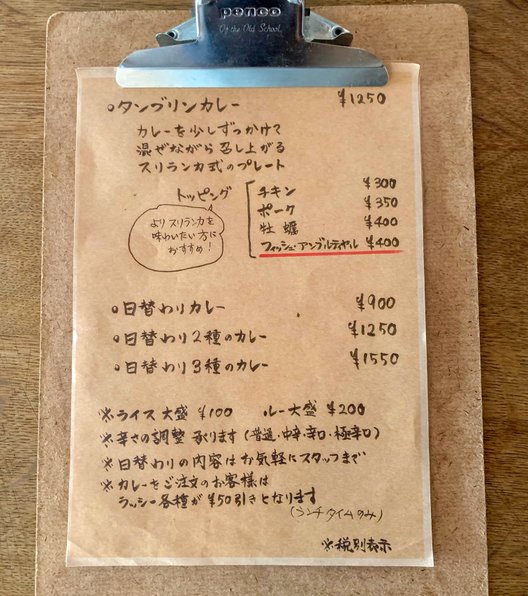 penco
Of the Old School
○タンブリンカレー ¥1250
カレーを少しずつかけて
混ぜながら召し上がる
スリランカ式のプレート
トッピング
チキン ¥300
ポーク ¥350
牡蠣 ¥400
フィッシュ・アンブルティヤル ¥400
よりスリランカを
味わいたい方に
おすすめ!
○日替わりカレー ¥900
○日替わり2種のカレー ¥1250
○日替わり3種のカレー ¥1550
※ライス大盛 ¥100 ルー大盛 ¥200
※辛さの調整 承ります(普通・中辛・辛口・極辛口)
※日替わりの内容はお気軽にスタッフまで
※カレーをご注文のお客様は
ラッシー各種が¥50引きとなります
(ランチタイムのみ)
※税別表示